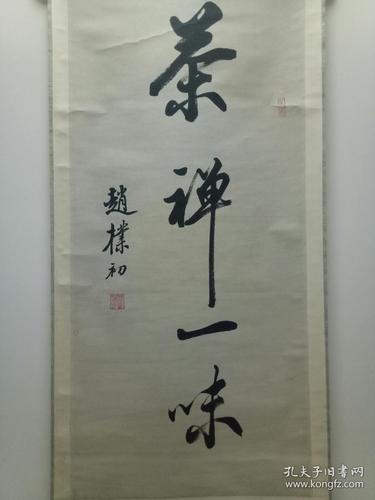 茶禅一味
趙樸初
孔夫子旧书网
www.kongfz.com